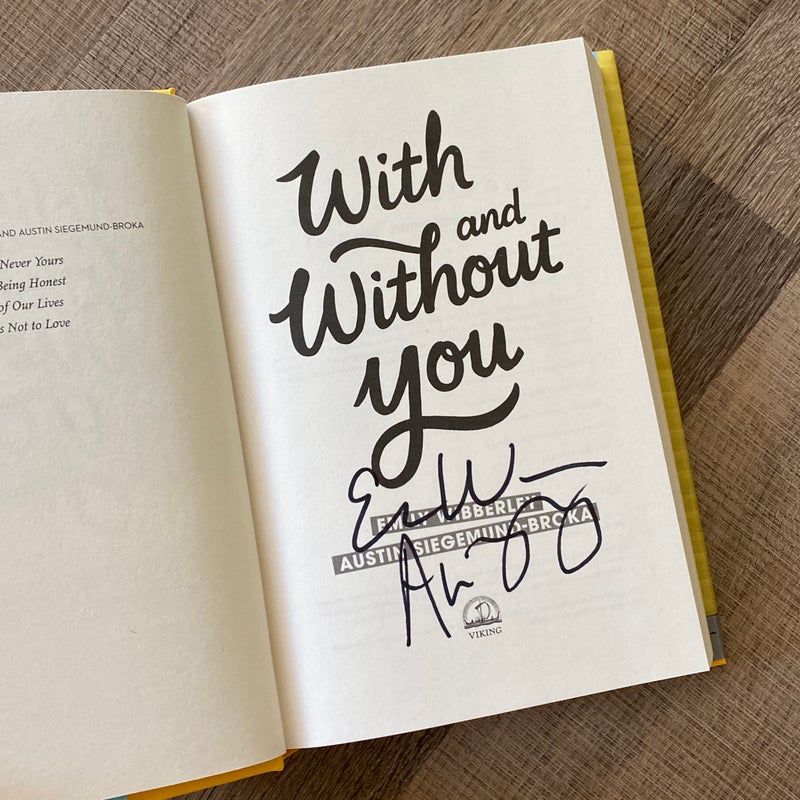 AND AUSTIN SIEGEMUND-BROKA
Never Yours
Being Honest
of Our Lives
s Not to Love
With
and
Without
you
EMILY WIBBERLEY
AUSTIN SIEGEMUND-BROKA
VIKING